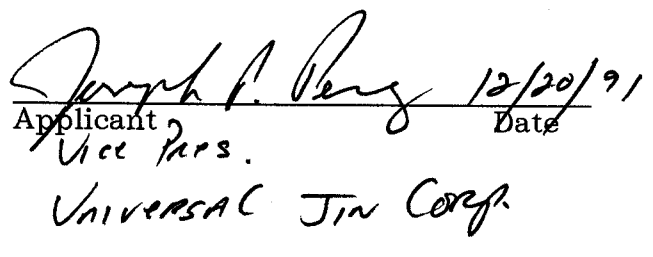 Joseph P. Peng 12/20/91
Applicant Date
Vice Pres.
Universal Jin Corp.